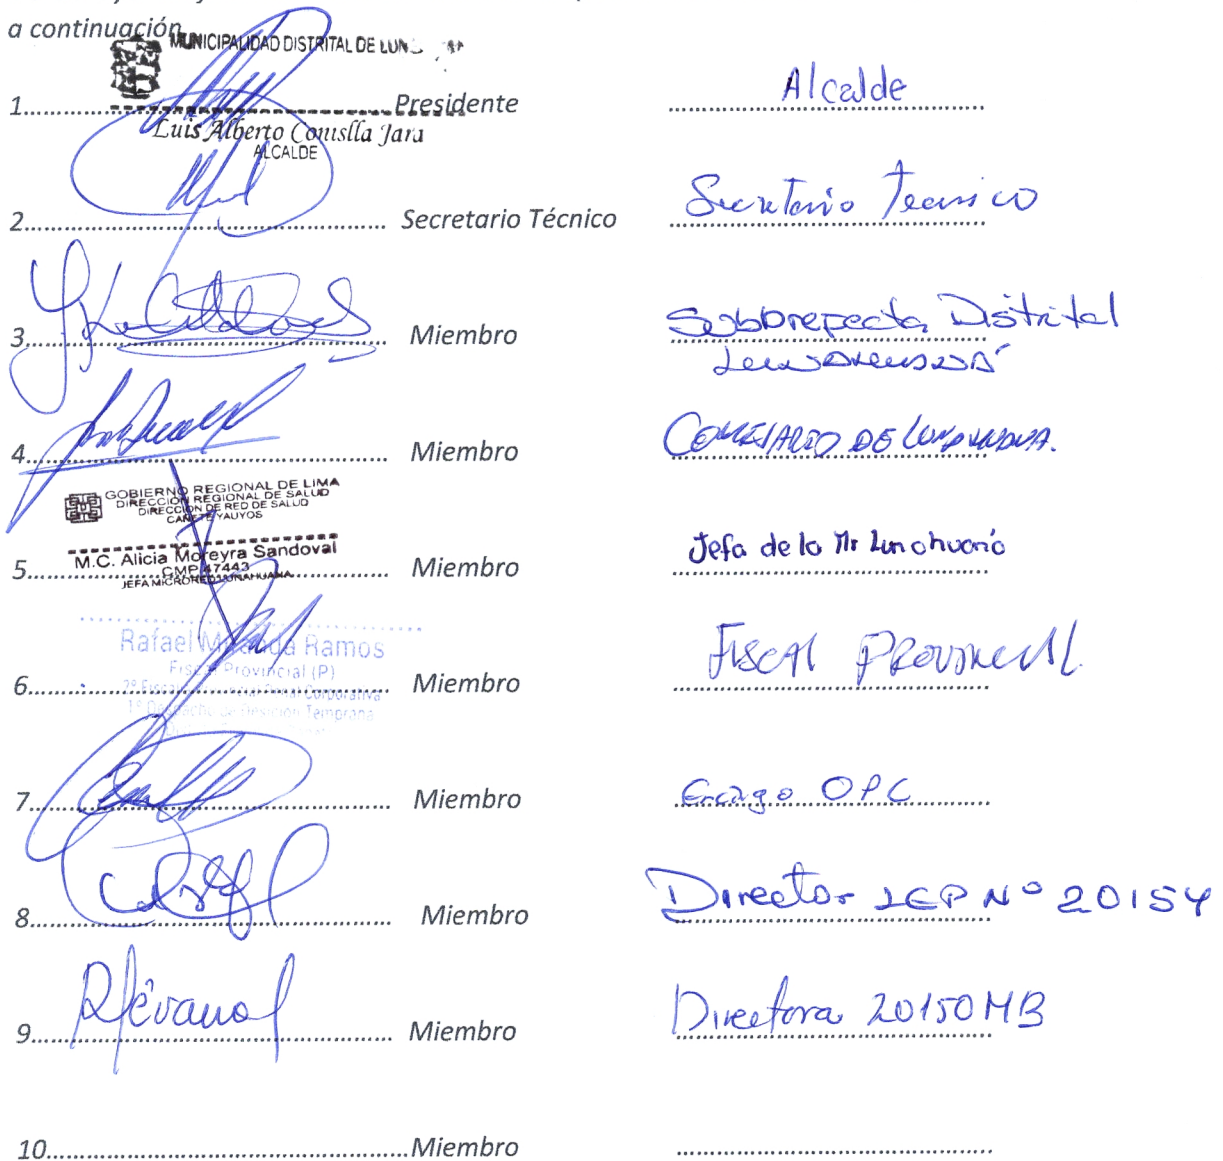 a continuación
MUNICIPALIDAD DISTRITAL DE
1 Presidente Alcalde
Luis Alberto
Jara
ALCALDE
2 Secretario Técnico Secretario Tecnico
3 Miembro Subprefecta Distrital
4 Miembro COMISARIO DE
GOBIERNO REGIONAL DE LIMA
DIRECCIÓN REGIONAL DE SALUD
DIRECCIÓN DE RED DE SALUD
CAÑETE YAUYOS
M.C. Alicia Moreyra Sandoval
CMP 47443
JEFA MICRORED LUNAHUANA
5 Miembro Jefa de la Mr Lunahuaná
Rafael Miranda Ramos
Fiscal Provincial (P)
6 Miembro Fiscal Provincial
1º Despacho de Decisión Temprana
7 Miembro OPC
8 Miembro Director IEP Nº 20154
9 Miembro Directora 20150 MB
10 Miembro